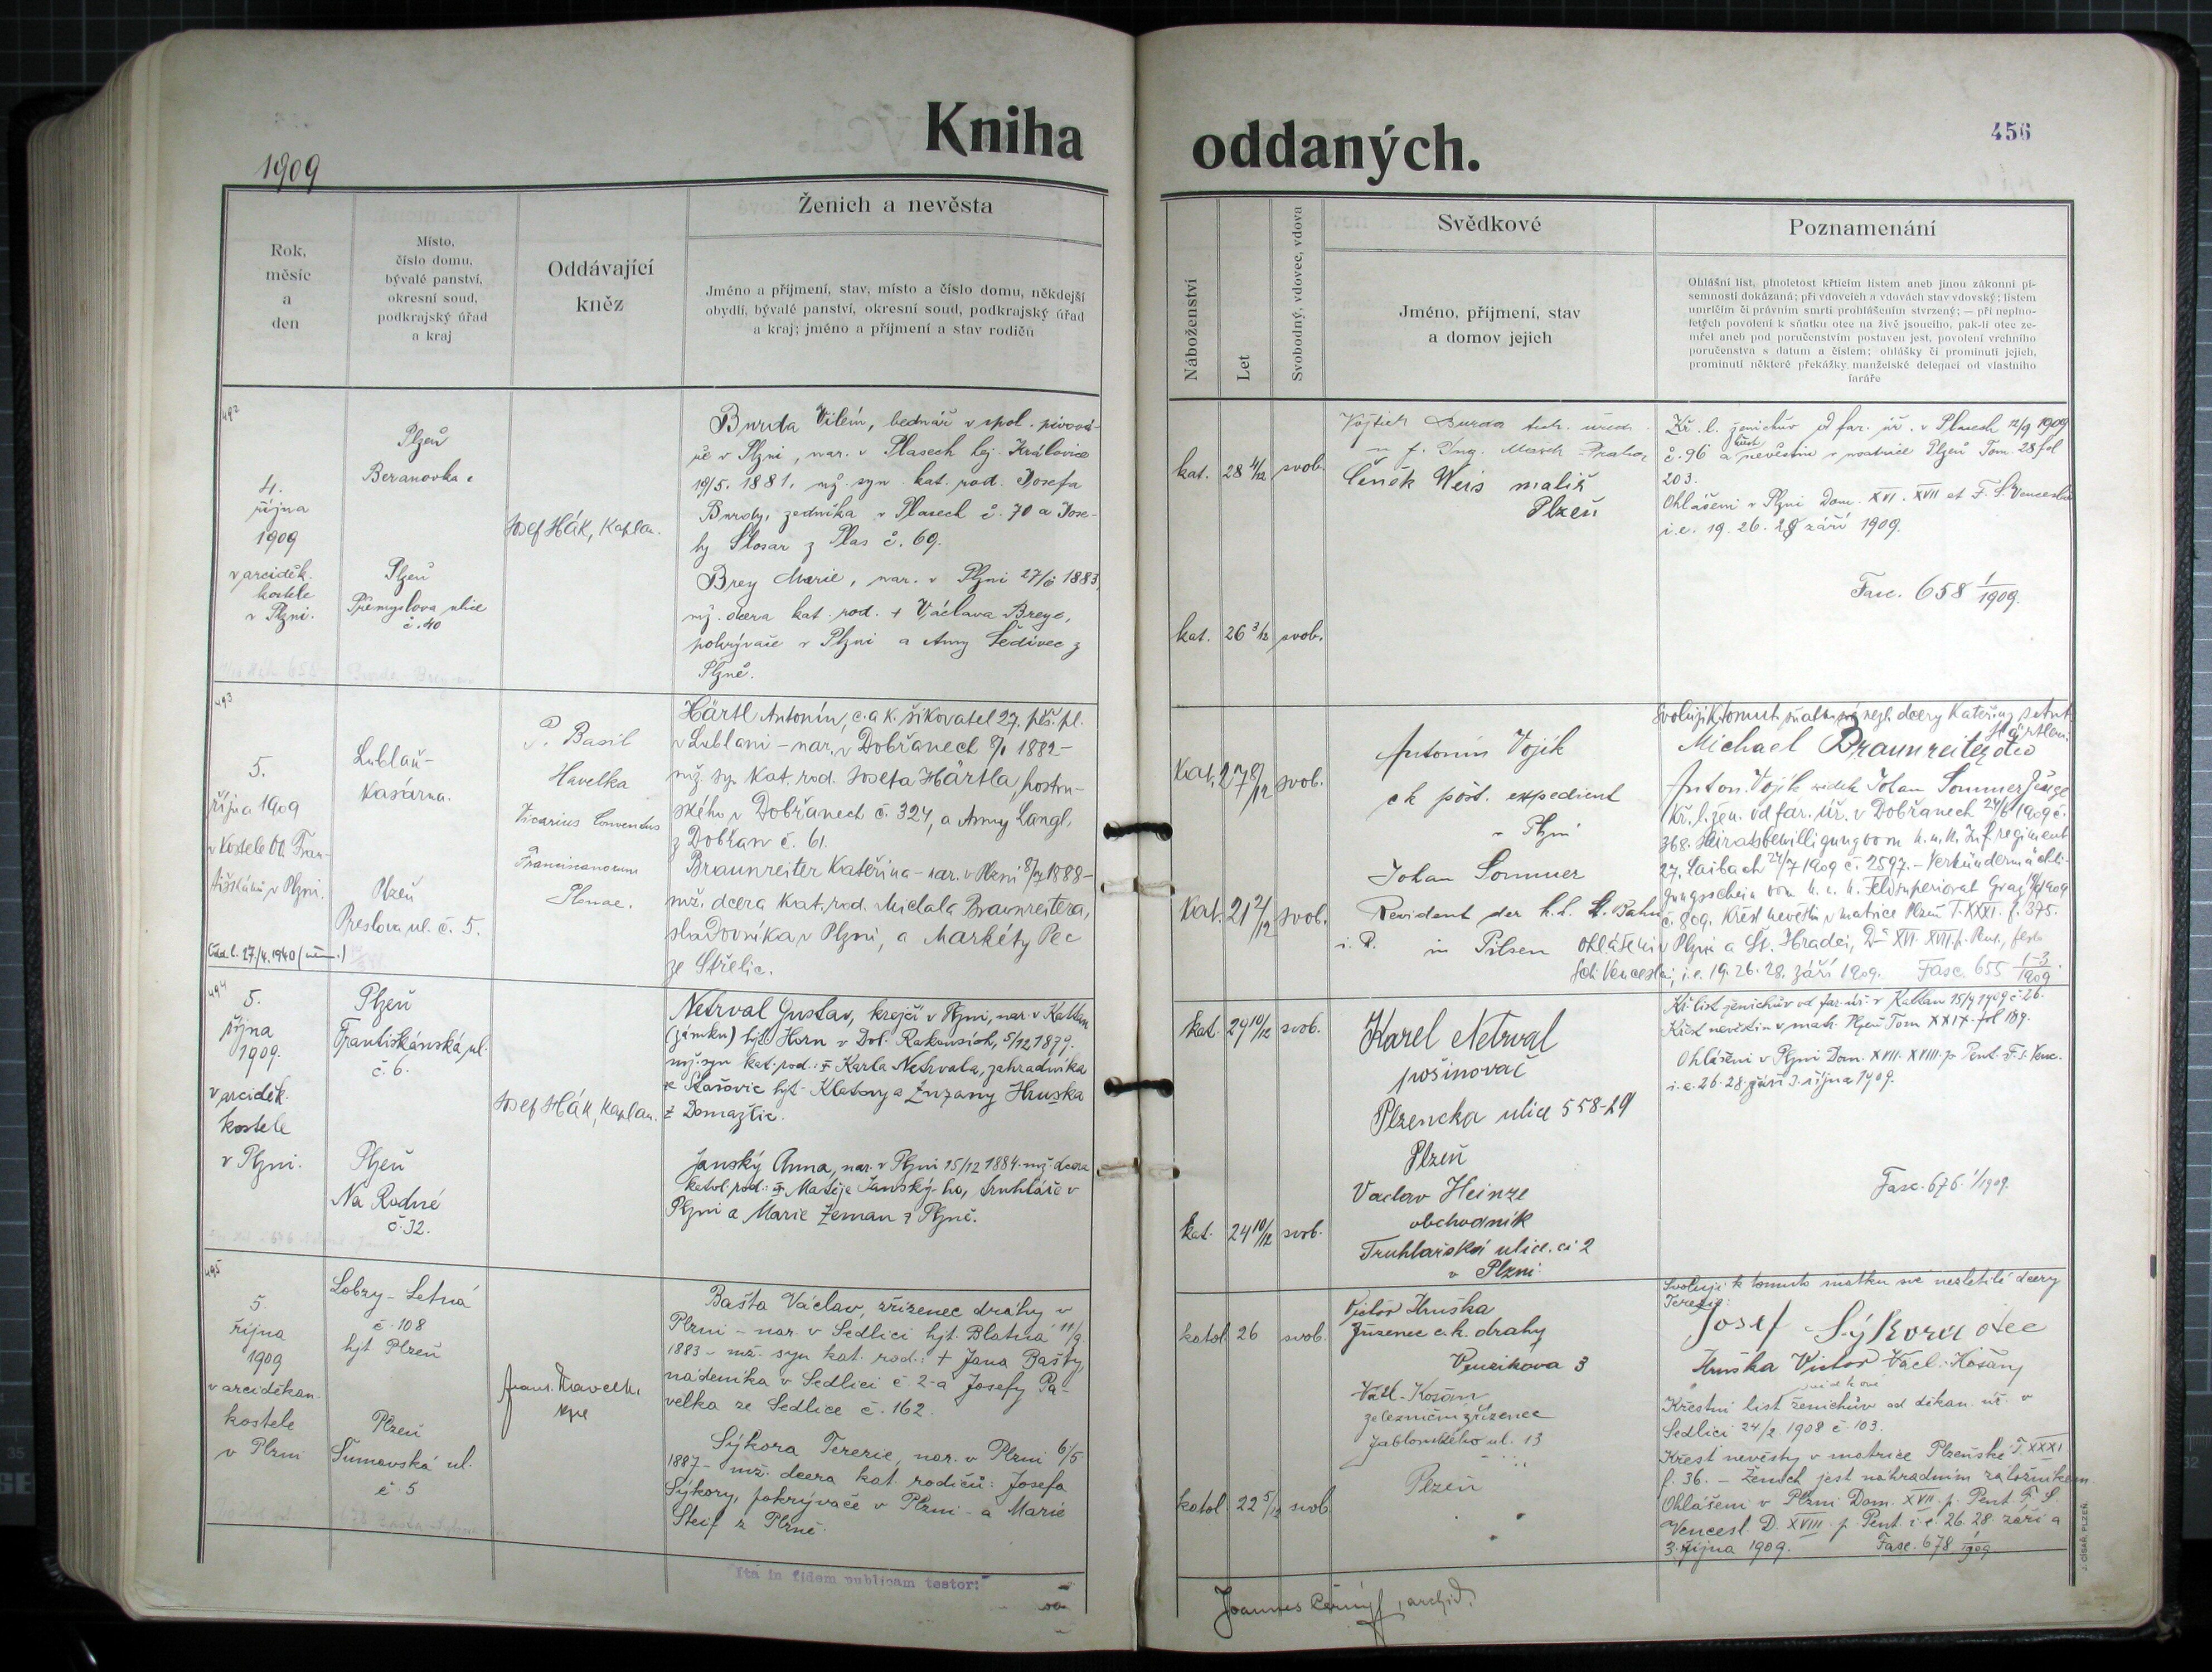 Kniha oddaných.
456
1909
Rok,
měsíc
a
den
Místo,
číslo domu,
bývalé panství,
okresní soud,
podkrajský úřad
a kraj
Oddávající
kněz
Ženich a nevěsta
Jméno a příjmení, stav, místo a číslo domu, někdejší
obydlí, bývalé panství, okresní soud, podkrajský úřad
a kraj; jméno a příjmení a stav rodičů
Náboženství
Let
Svobodný, vdovec, vdova
Svědkové
Jméno, příjmení, stav
a domov jejich
Poznamenání
Ohlášní list, plnoletost křtícím listem aneb jinou zákonní pí-
semností dokázaná; při vdovcích a vdovách stav vdovský; listem
umrlčím či právním smrti prohlášením stvrzený; — při neplno-
letých povolení k sňatku otce na živě jsoucího, pak-li otec ze-
mřel aneb pod poručenstvím postaven jest, povolení vrchního
poručenstva s datum a číslem; ohlášky či prominutí jejich,
prominutí některé překážky manželské delegací od vlastního
faráře
492
4.
října
1909
v arciděk.
kostele
v Plzni.
Plzeň
Beranovka
Plzeň
Přemyslova ulice
č. 40
Josef Hák, Kaplan.
Burda Vilém, bednář v spol. pivová-
ře v Plzni, nar. v Plasech hej. Kralovice
19/5. 1881. mž. syn kat. rod. Josefa
Burdy, zedníka v Plasech č. 70 a Jose-
fy Slosar z Plas č. 69.
Brey Marie, nar. v Plzni 27/6 1883,
mž. dcera kat. rod. + Václava Breye,
pokrývače v Plzni a Anny Šedivec z
Plzně.
kat. 28 4/12 svob.
kat. 26 3/12 svob.
Vojtěch Burda tech. úřed.
Čeněk Weis malíř
Plzeň
Kř. l. ženichův od far. úř. v Plasech 12/9 1909
č. 96 a křest nevěstin v matrice Plzeň Tom. 28 fol
203.
Ohlášeni v Plzni Dom. XVI. XVII et F. S. Venceslai
i.e. 19. 26. 28 září 1909.
Fasc. 658 1/1909.
493
5.
října 1909
v kostele Ot. Fran-
tiškánů v Plzni.
Odd. l. 27./4. 1940 (něm.)
Lublaň-
Kasárna.
Plzeň
Preslova ul. č. 5.
P. Basil
Havelka
Vicarius Conventus
Franciscanorum
Plenae.
Härtl Antonín, c. a k. šikovatel 27. pěš. pl.
v Lublani - nar. v Dobřanech 8/1 1882 -
mž. sy. kat. rod. Josefa Härtla, postru-
ského v Dobřanech č. 324, a Anny Langl,
z Dobřan č. 61.
Braunreiter Kateřina - nar. v Plzni 8/7 1888 -
mž. dcera kat. rod. Michala Braunreitera,
sladovníka v Plzni, a Markéty Pec
ze Střelic.
Kat. 27 8/12 svob.
Kat. 21 2/12 svob.
Antonín Vojík
c k pošt. expedient
v Plzni
Johan Sommer
Revident der k.k. St. Bahn
i. P. in Pilsen
Svoluji k tomut. sňatku své nezl. dcery Kateřiny s Ant.
Härtlem:
Michael Braunreiter otec
Anton. Vojík svědek Johan Sommer Zeuge
Kř. l. žen. od far. úř. v Dobřanech 24/6 1909 č.
368. Heiratsbewilligung vom k.u.k. Inf. regiment
27. Laibach 24/7 1909 č. 2597. - Verkündermächti-
gungsschein vom k. u. k. Feldsuperiorat Graz 19/9 1909
č. 809. Křest nevěsti v matrice Plzeň T. XXXI. f. 375.
Ohlášeni v Plzni a Št. Hradci, D. XVI. XVII. p. Pent., festo
Scti Venceslai, i.e. 19. 26. 28. září 1909. Fasc. 655 1-3/1909
494
5.
října
1909.
v arciděk.
kostele
v Plzni.
Plzeň
Františkánská ul.
č. 6.
Plzeň
Na Rodné
č. 32.
Josef Hák, Kaplan.
Netrval Gustav, krejčí v Plzni, nar. v Kattau
(zámku) hjt Horn v Dol. Rakousích, 5/12 1879.
mž. syn kat. rod.: + Karla Netrvala, zahradníka
ze Slašovic hjt. Klatovy a Zuzany Hruska
z Domažlic.
Janský Anna, nar. v Plzni 15/12 1884. mž. dcera
katol. rod.: + Matěje Janský-ho, truhláře v
Plzni a Marie Zeman z Plzně.
kat. 29 10/12 svob.
kat. 24 10/12 svob.
Karel Netrval
pošinovač
Plzencka ulice 558-29
Plzeň
Vaclav Heinze
obchodník
Truhlařská ulice. čí 2
v Plzni
Kř. list ženichův od far. úř. v Kattau 15/9 1909 č. 26.
Křest nevěstin v matr. Plzeň Tom XXIX. fol 189.
Ohlášeni v Plzni Dom. XVII. XVIII. p. Pent. F. S. Venc.
i.e. 26. 28. září 3. října 1909.
Fasc. 676. 1/1909.
495
5.
října
1909
v arciděkan.
kostele
v Plzni
Lobzy - Letná
č. 108
hjt Plzeň
Plzeň
Šumavská ul.
č. 5
Bašta Václav, zřízenec dráhy v
Plzni - nar. v Sedlici hjt. Blatná 11/9
1883 - mž. syn kat. rod.: + Jana Bašty,
nádeníka v Sedlici č. 2 - a Josefy Pa-
velka ze Sedlice č. 162.
Sýkora Terezie, nar. v Plzni 6/5
1887 - mž. dcera kat. rodičů: Josefa
Sýkory, pokrývače v Plzni - a Marie
Steif z Plzně.
katol. 26 svob.
katol. 22 5/12 svob.
Victor Hruška
Zřízenec c. k. drahy
3
Václ. Košan
železniční zřízenec
Jablonského ul. 13
Plzeň
Svoluji k tomuto sňatku své nezletilé dcery
Terezie:
Josef Sýkora otec
Hruška Victor Václ. Košan
svědkové
Křestní list ženichův od děkan. úř. v
Sedlici 24/2 1908 č. 103.
Křest nevěsty v matrice Plzeňské T. XXXI
f. 36. - Ženich jest náhradním záložníkem.
Ohlášeni v Plzni Dom. XVII. p. Pent. F. S.
Vencesl. D. XVIII. p. Pent. i.e. 26. 28. září a
3. října 1909. Fasc. 678 1/1909
"Ita in fidem publicam testor:"
Joannes Černý, archid.
J. CÍSAŘ, PLZEŇ.